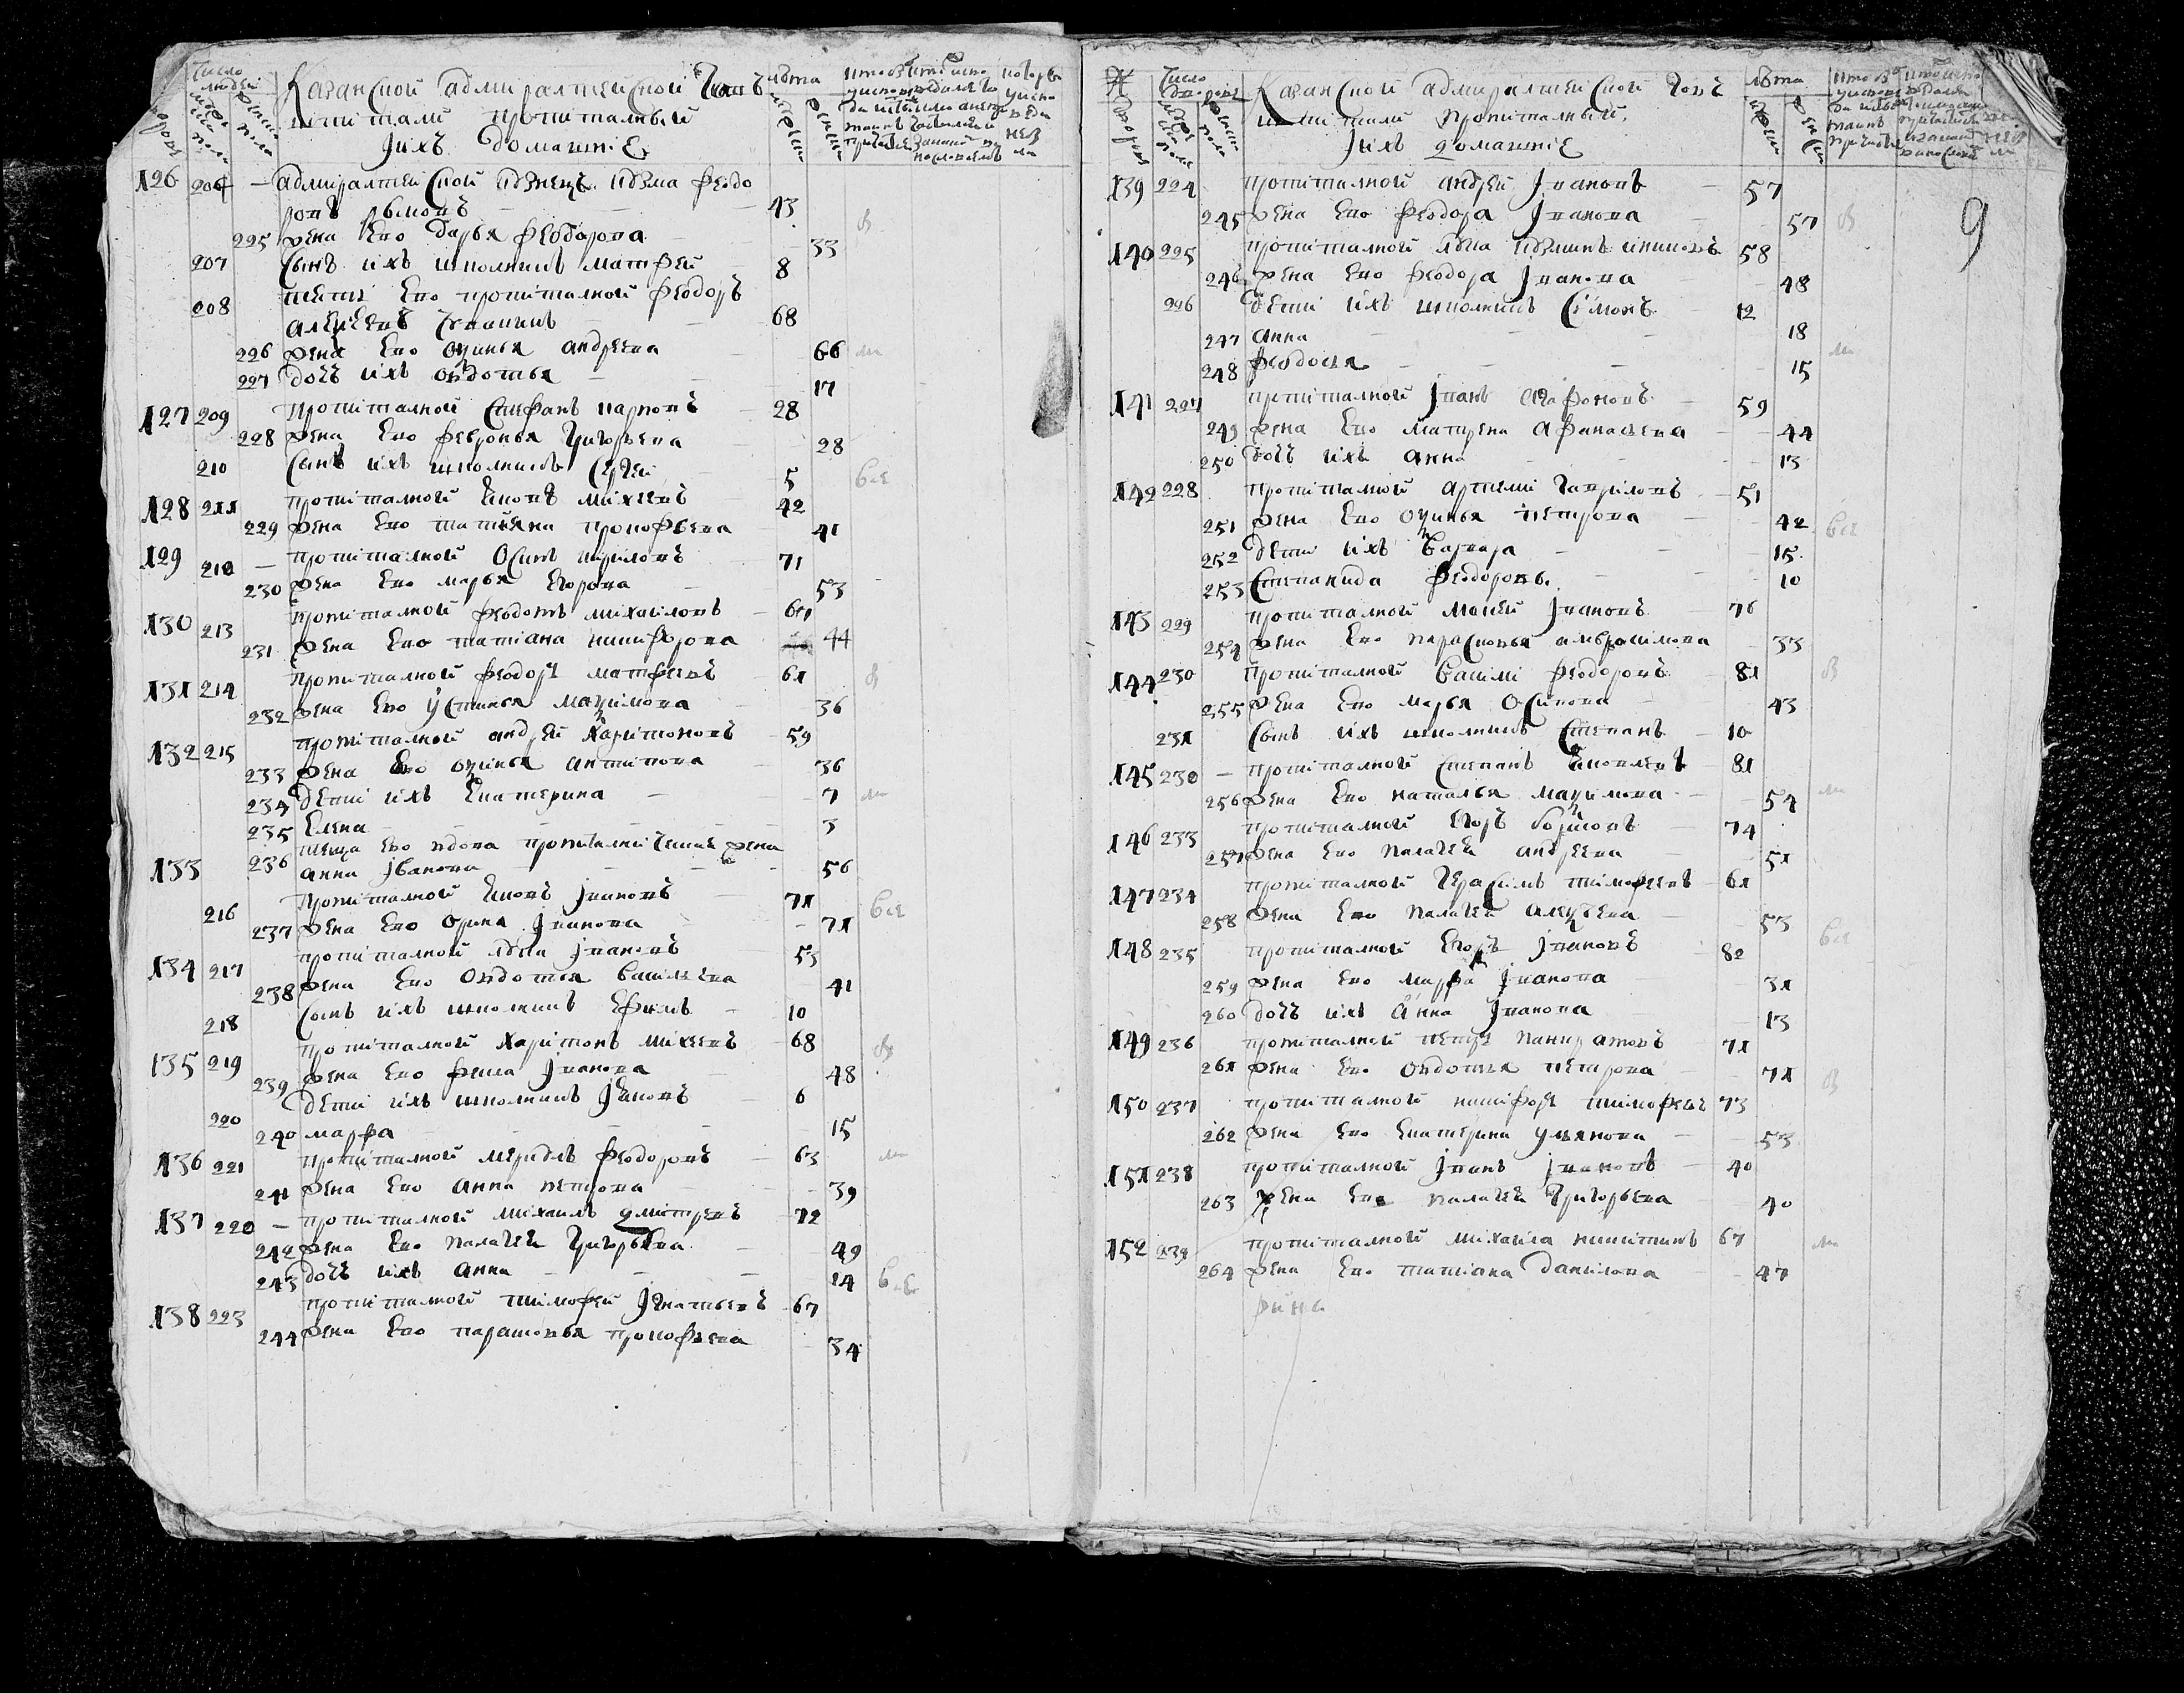 Казанской адмиралтейской гошпитали пропиталныи
и ихъ домашние
126 206 — адмиралтейской кузнецъ кузма Феодоровъ 43
225 жена ево дарья Феодорова 33
207 сынъ ихъ школникъ матфей 8
208 тесть ево пропиталной Феодоръ
алексеевъ 68
226 жена ево оксинья андреева 66
227 дочь ихъ овдотья 17
127 209 пропиталной стефанъ карповъ 28
228 жена ево Февронья григорьева 28
210 сынъ ихъ школникъ сергей 5
128 211 пропиталной яковъ михеевъ 42
229 жена ево татьяна прокофьева 41
129 212 — пропиталной осипъ кириловъ 71
230 жена ево марья егорова 53
130 213 пропиталной Феодотъ михаиловъ
231 жена ево татиана никифорова 44
131 214 пропиталной Феодоръ матфеевъ 61
232 жена ево устинья максимова 36
132 215 пропиталной андрей харитоновъ 59
233 жена ево оксинья антипова 36
234 дети ихъ екатерина 7
235 елена 3
133 236 теща ево вдова жена
анна иванова 56
216 пропиталной яковъ ивановъ 71
237 жена ево орина иванова 71
134 217 пропиталной лука ивановъ 53
238 жена ево овдотья васильева 41
218 сынъ ихъ школникъ ефимъ 10
135 219 пропиталной харитонъ михеевъ 68
239 жена ево Фекла иванова 48
220 дети ихъ школникъ яковъ 6
240 марфа 15
136 221 пропиталной Феодоровъ 63
241 жена ево анна петрова 39
137 222 — пропиталной михаилъ дмитреевъ 72
242 жена ево палагея григорьева 49
243 дочь ихъ анна 24
138 223 пропиталной тимофей игнатьевъ 67
244 жена ево парасковья прокофьева 34
9
Казанской адмиралтейской гош
питали пропиталныи
и ихъ домашние
139 224 пропиталной андрей ивановъ 57
245 жена ево Феодора иванова 57
140 225 пропиталной лука 58
246 жена ево Феодора иванова 48
226 дети ихъ школникъ симонъ 12
247 анна 18
248 Феодосья 15
141 227 пропиталной иванъ агафоновъ 59
249 жена ево матрена афанасьева 44
250 дочь ихъ анна 13
142 228 пропиталной артемий гавриловъ 51
251 жена ево оксинья петрова 42
252 дети ихъ варвара 15
253 степанида Феодоровы 10
143 229 пропиталной мосей ивановъ 76
254 жена ево парасковья амвросимова 33
144 230 пропиталной василий Феодоровъ 81
255 жена ево марья осипова 43
231 сынъ ихъ школникъ степанъ 10
145 232 — пропиталной степанъ яковлевъ 81
256 жена ево наталья максимова 54
146 233 пропиталной егоръ борисовъ 74
257 жена ево палагея андреева 51
147 234 пропиталной герасимъ тимофеевъ 61
258 жена ево палагея алексеева 53
148 235 пропиталной егоръ ивановъ 82
259 жена ево марфа иванова 31
260 дочь ихъ анна иванова 13
149 236 пропиталной петръ панкратовъ 71
261 жена ево овдотья петрова 71
150 237 пропиталной никифоръ тимофеевъ 73
262 жена ево екатерина ульянова 53
151 238 пропиталной иванъ ивановъ 40
263 жена ево палагея григорьева 40
152 239 пропиталной михаила никитинъ 67
264 жена ево татиана данилова 47